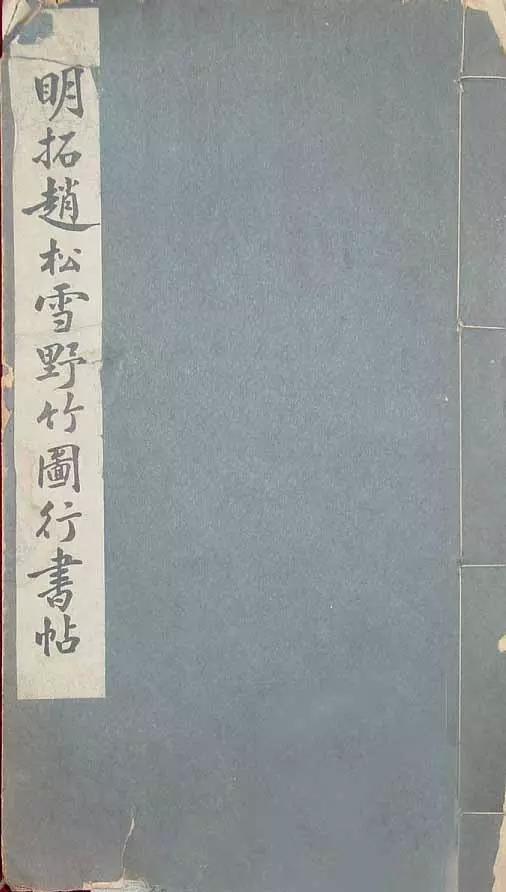 明拓趙松雪野竹圖行書帖